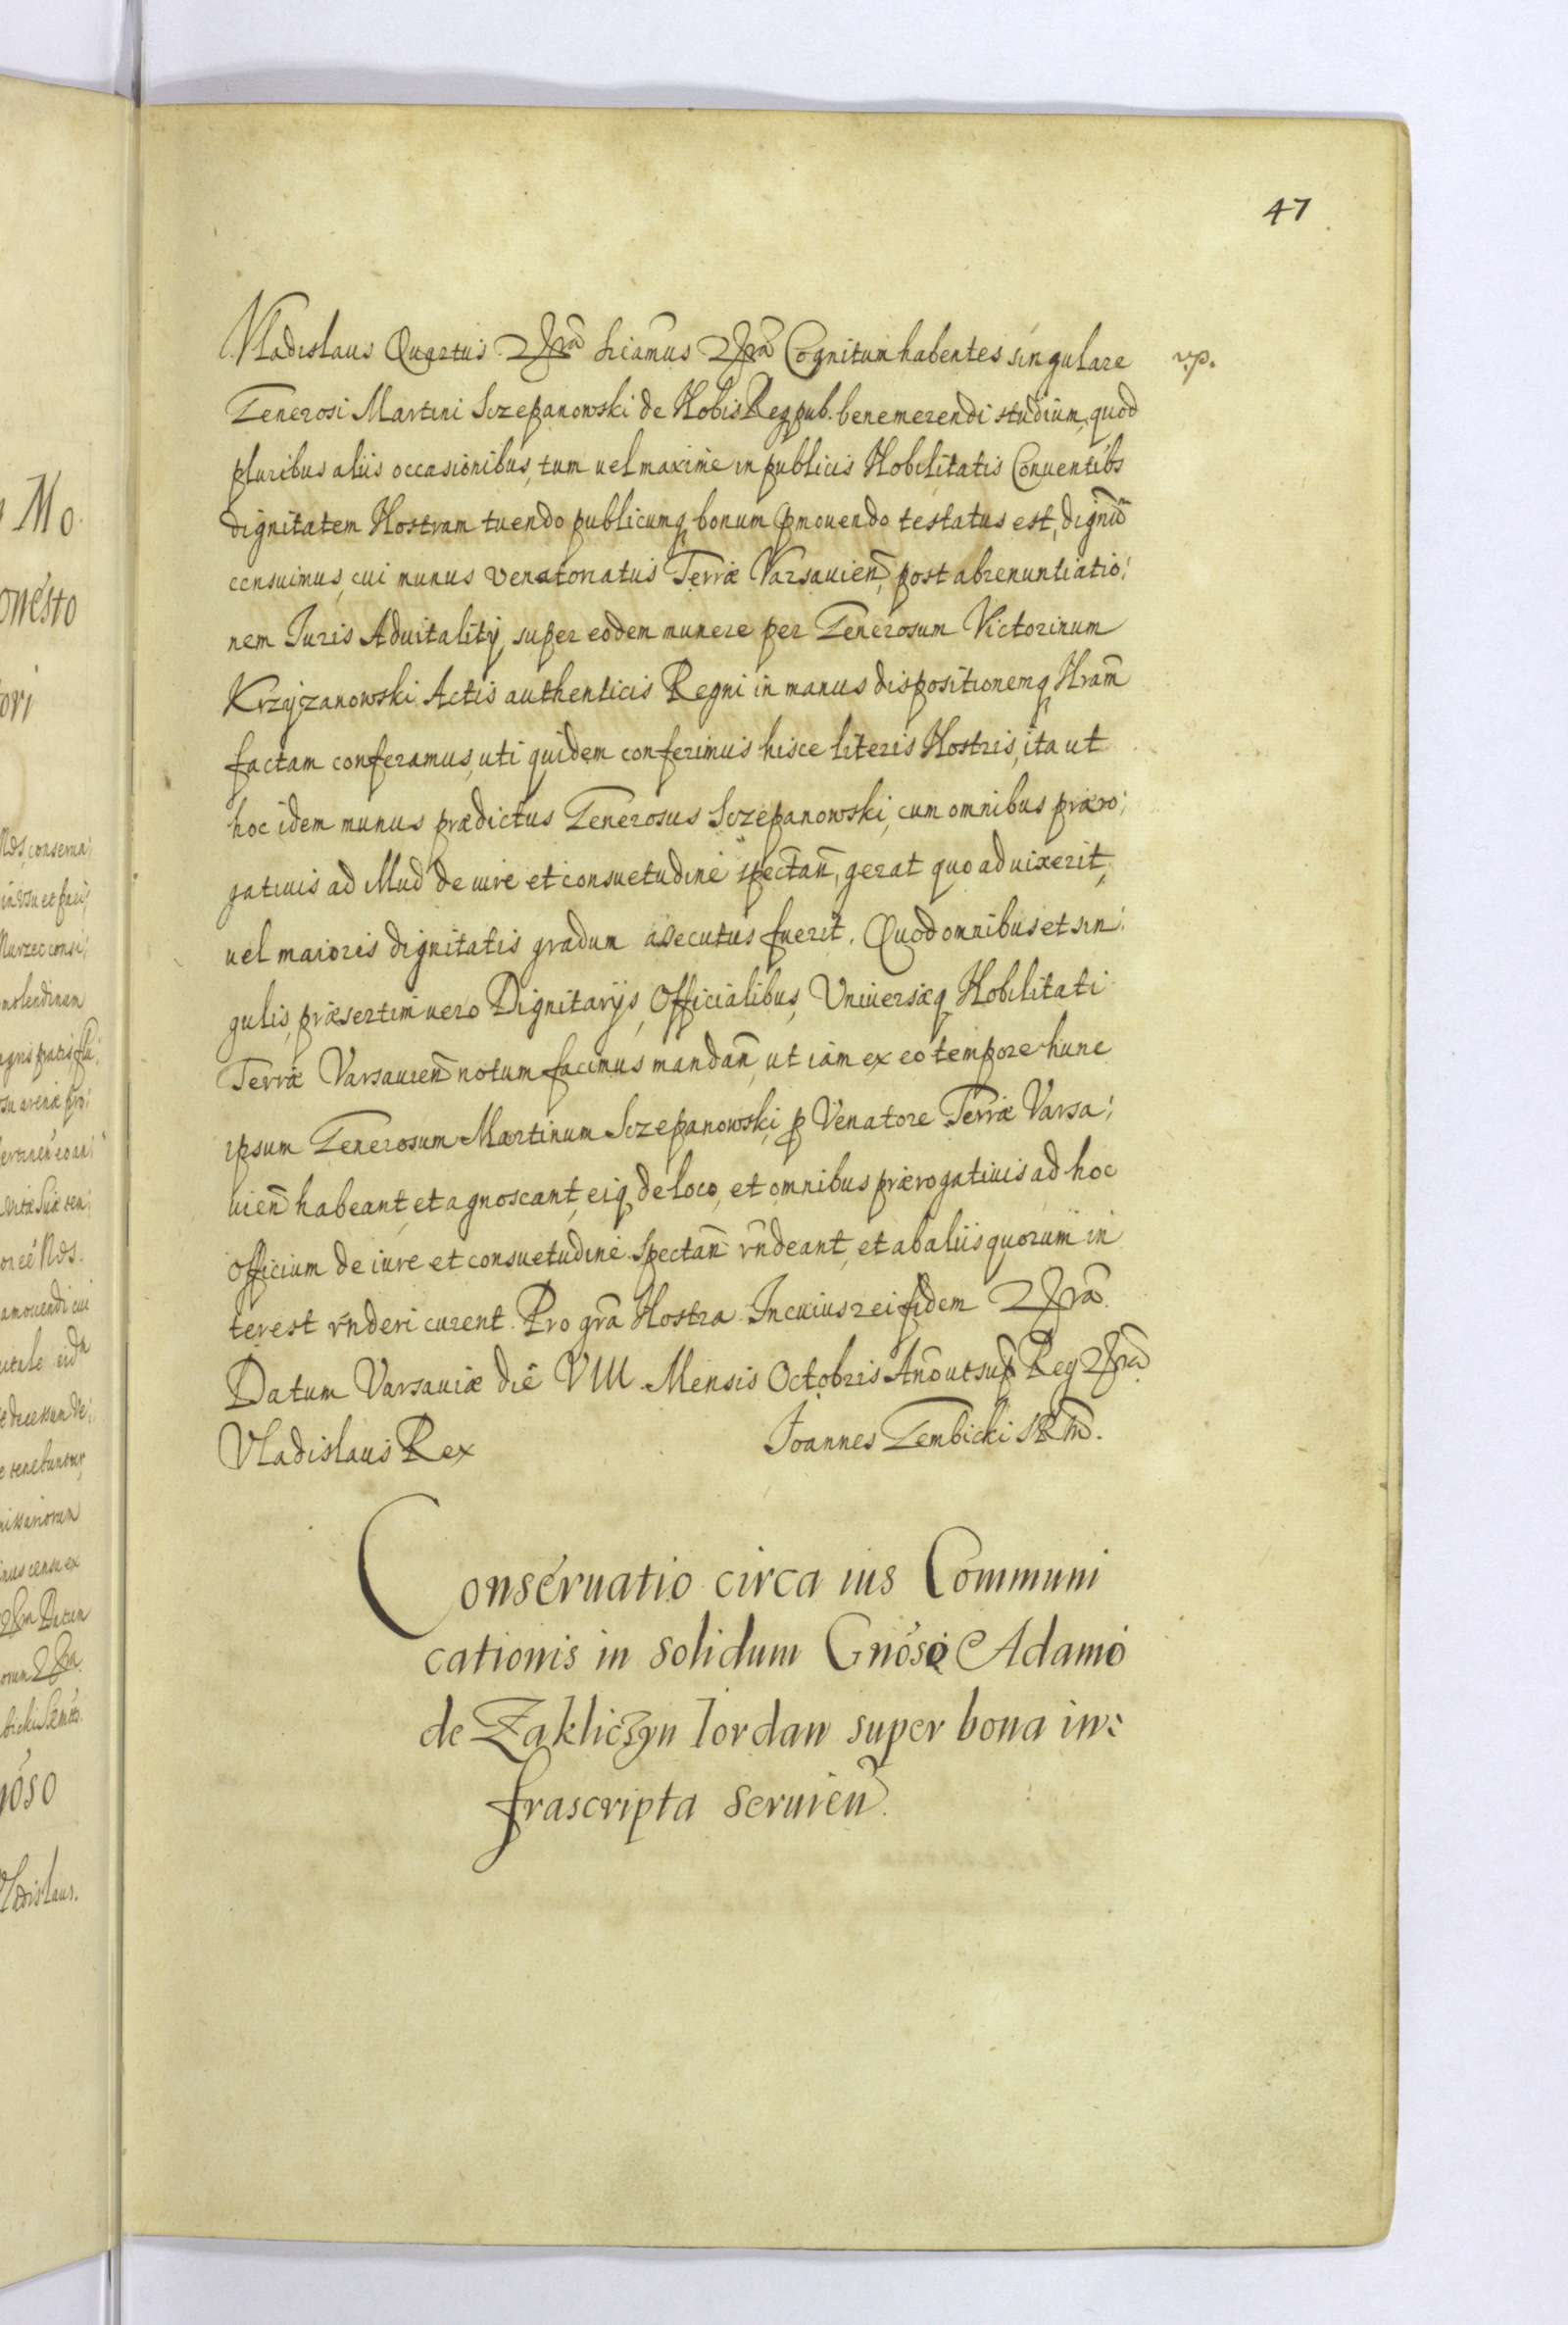 47
Vladislaus Quartus &c̃ra Sciamus &c̃ra Cognitum habentes singulare vp.
Generosi Martini Sczepanowski de Nobis Reqpub. benemerendi studium, quod
pluribus aliis occasionibus, tum vel maxime in publicis Nobilitatis Conventibs
dignitatem Nostram tuendo publicumq bonum pmouendo testatus est, dignũ
censuimus, cui munus venatoriatus Terræ Varsauieñ, post abrenuntiatio:
nem Iuris Aduitalitÿ, super eodem munere per Generosum Victorinum
Krzyżanowski Actis authenticis Regni in manus dispositionemq Nram̃
factam conferamus, uti quidem conferimus hisce literis Nostris, ita ut
hoc idem munus prædictus Generosus Sczepanowski, cum omnibus præro:
gatiuis ad illud de iure et consuetudine spectañ, gerat quo ad uixerit,
uel maioris dignitatis gradum asecutus fuerit. Quod omnibus et sin:
gulis, præsertim uero Dignitarÿs, Officialibus, Vniuersæq Nobilitati
Terræ Varsauieñ notum facimus mandañ, ut iam ex eo tempore hunc
ipsum Generosum Martinum Sczepanowski p Venatore Terræ Varsa:
uieñ habeant, et agnoscant, eiq de loco, et omnibus prærogatiuis ad hoc
officium de iure et consuetudine spectañ rñdeant, et ab aliis quorum in
terest rñderi curent. Pro grã Nostra. In cuius rei fidem &c̃ra
Datum Varsauiæ die VIII Mensis Octobris Anõ ut sup Reg &c̃ra
Vladislaus Rex Joannes Gembicki SRM̃.
Conseruatio circa ius Communi
cationis in solidum Gnoso Adamo
de Zakliczyn Iordan super bona in:
frascripta seruieñ.
Mo.
onesto
Nos, conserua:
molendinum
Vladislaus.